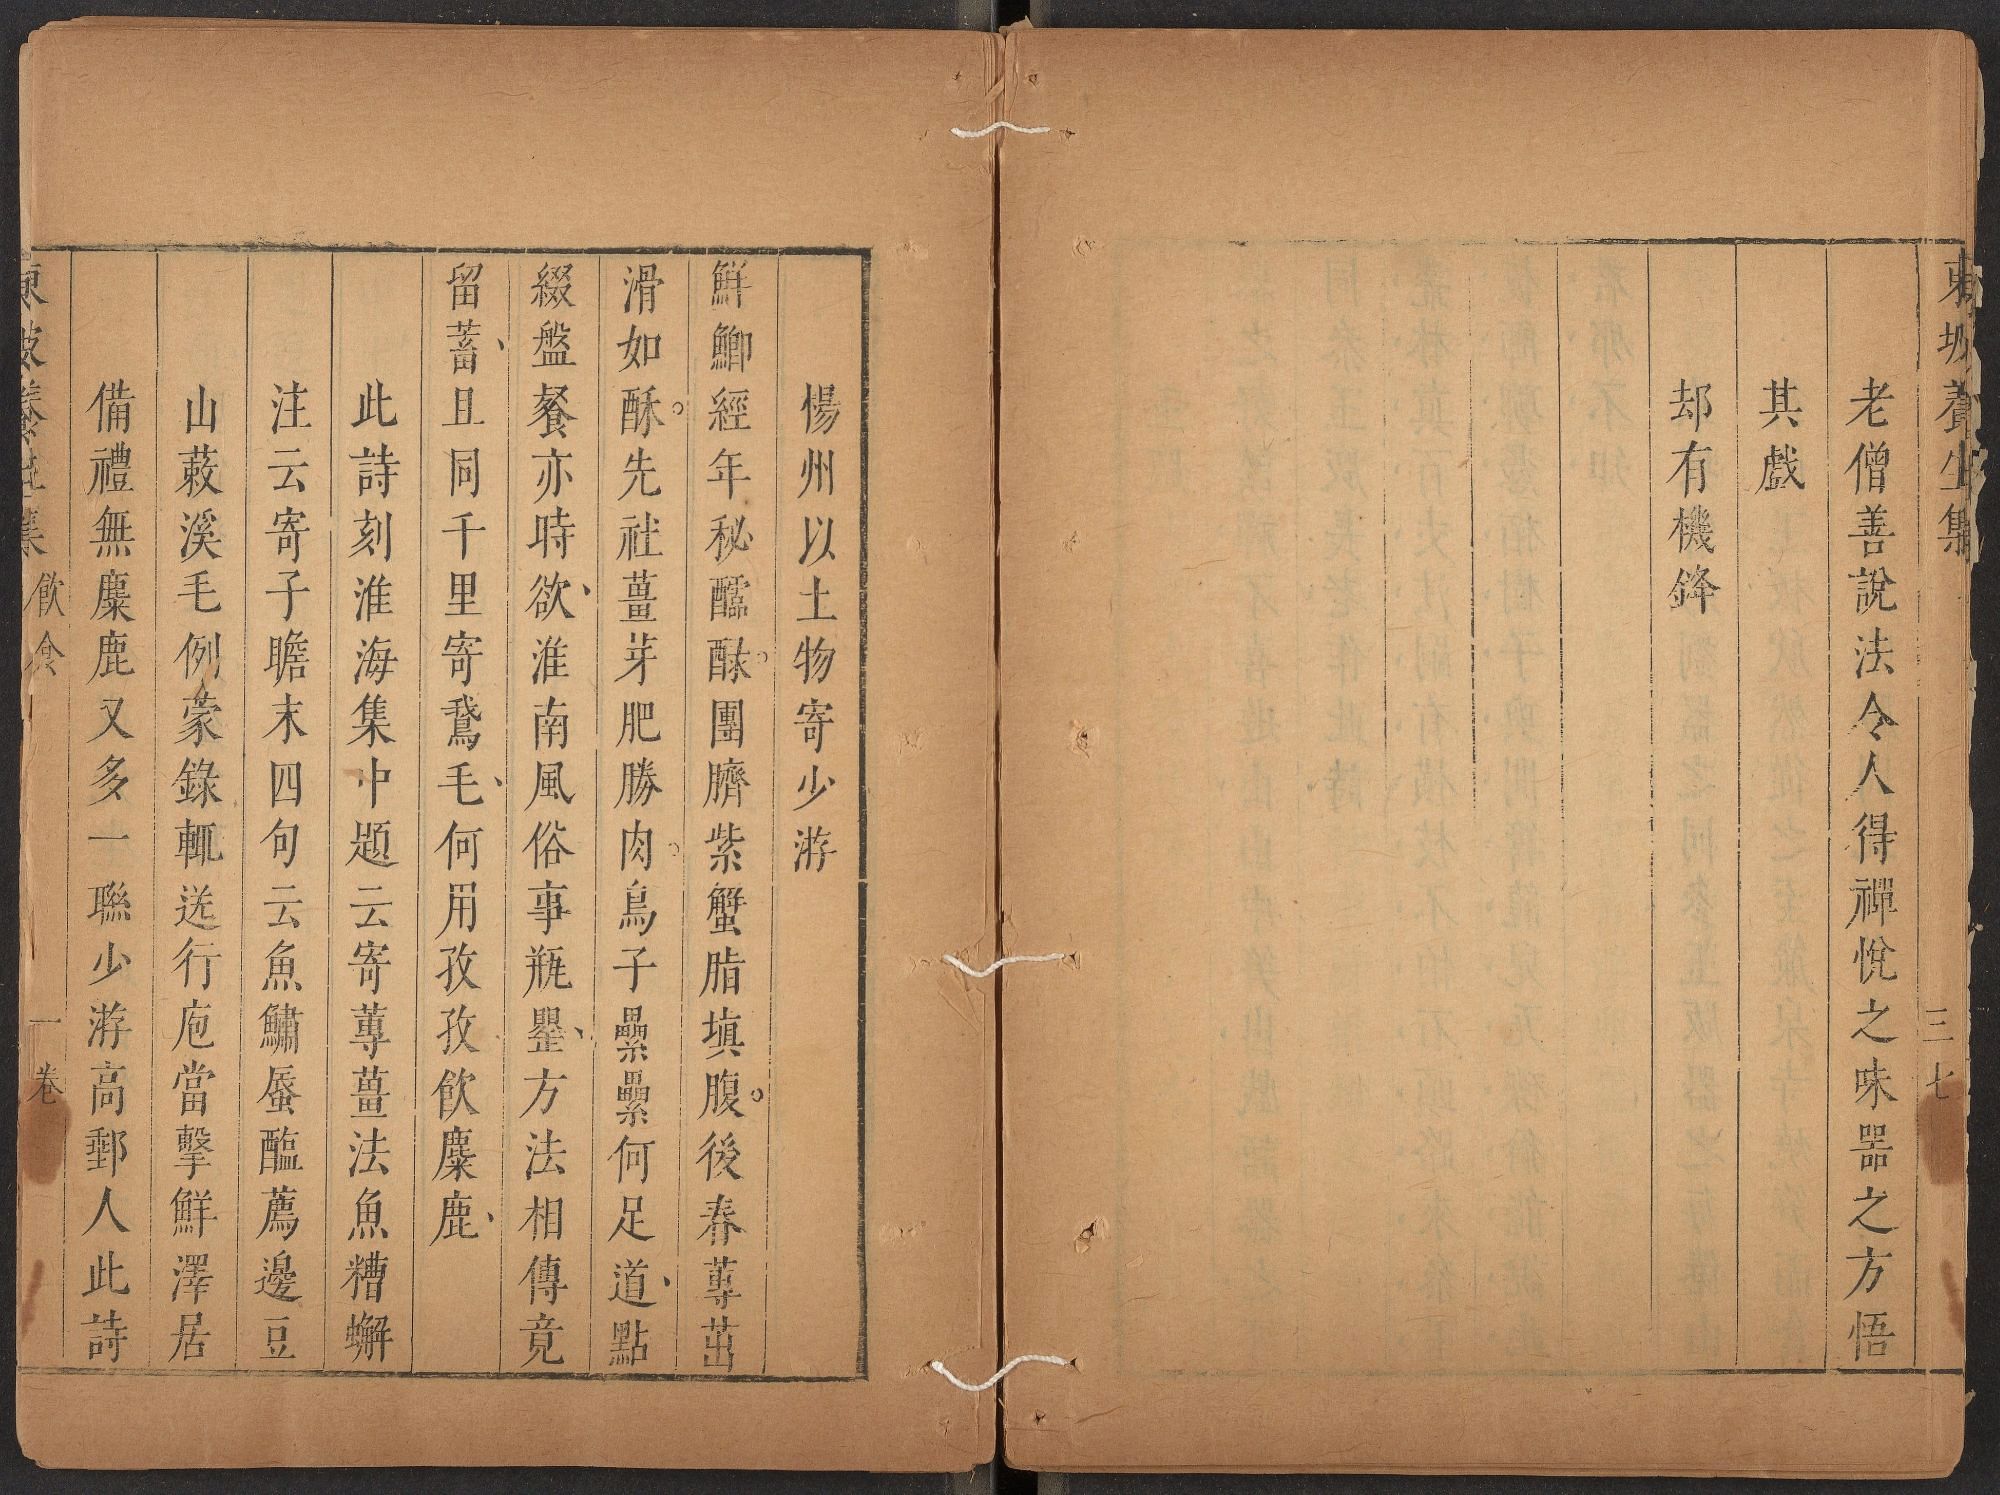 東坡養生集
三七
老僧善說法令人得禪悅之味器之方悟
其戲
却有機鋒
楊州以土物寄少游
鮮鯽經年秘醽醁團臍紫蟹脂填腹後春蓴茁
滑如酥先社薑芽肥勝肉鳥子纍纍何足道點
綴盤餐亦時欲淮南風俗事瓶罌方法相傳竟
留蓄且同千里寄鵞毛何用孜孜飲麋鹿
此詩刻淮海集中題云寄蓴薑法魚糟蠏
注云寄子瞻末四句云魚鱐蜃醢薦邊豆
山蔌溪毛例蒙錄輒送行庖當擊鮮澤居
備禮無麋鹿又多一聯少游高郵人此詩
東坡養生集
飲食
一卷